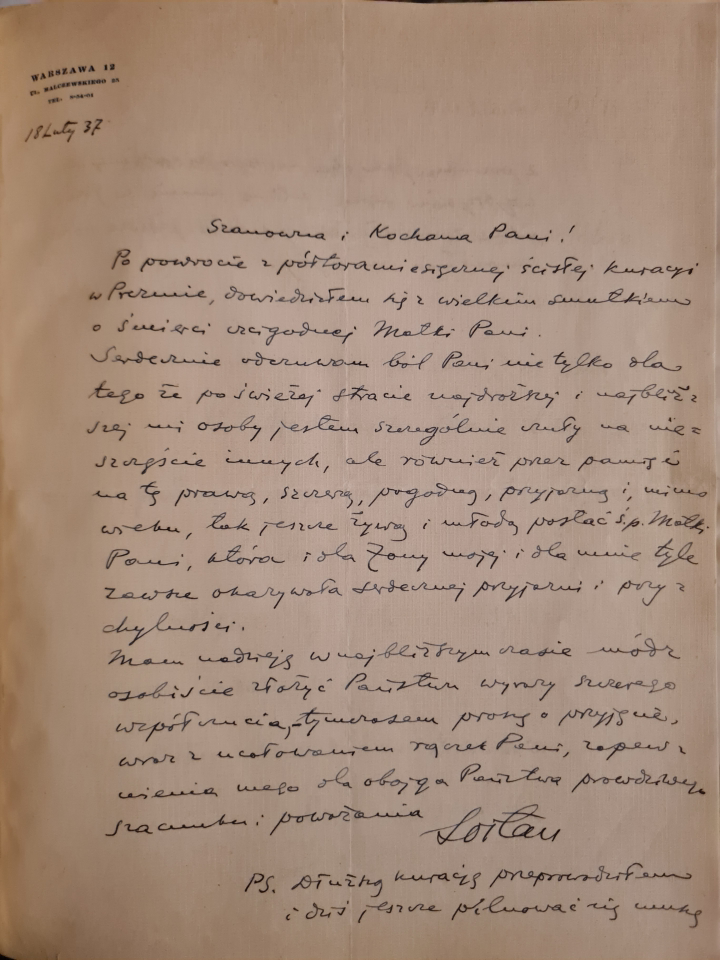 WARSZAWA 12
UL. MALCZEWSKIEGO
TEL.
18 Luty 37
Szanowna i Kochana Pani!
Po powrocie z półtoramiesięcznej ścisłej kuracyi
w , dowiedziałem się z wielkim smutkiem
o śmierci czcigodnej Matki Pani.
Serdecznie odczuwam ból Pani nie tylko dla
tego że po świeżej stracie najdroższej i najbliż=
szej mi osoby jestem szczególnie czuły na nie=
szczęście innych, ale również przez pamięć
na tę prawą, szczerą, pogodną, przyjazną i, mimo
wieku, tak jeszcze żywą i młodą postać ś.p. Matki
Pani, która i dla Żony mojej i dla mnie tyle
zawsze okazywała serdecznej przyjaźni i przy=
chylności.
Mam nadzieję w najbliższym czasie módz
osobiście złożyć Państwu wyrazy szczerego
współczucia, tymczasem proszę o przyjęcie,
wraz z ucałowaniem rączek Pani, zapew=
nienia mego dla obojga Państwa prawdziwego
szacunku i poważania
Sołtan
PS. Dłuższą kurację przeprowadziłem
i dziś jeszcze pilnować się muszę